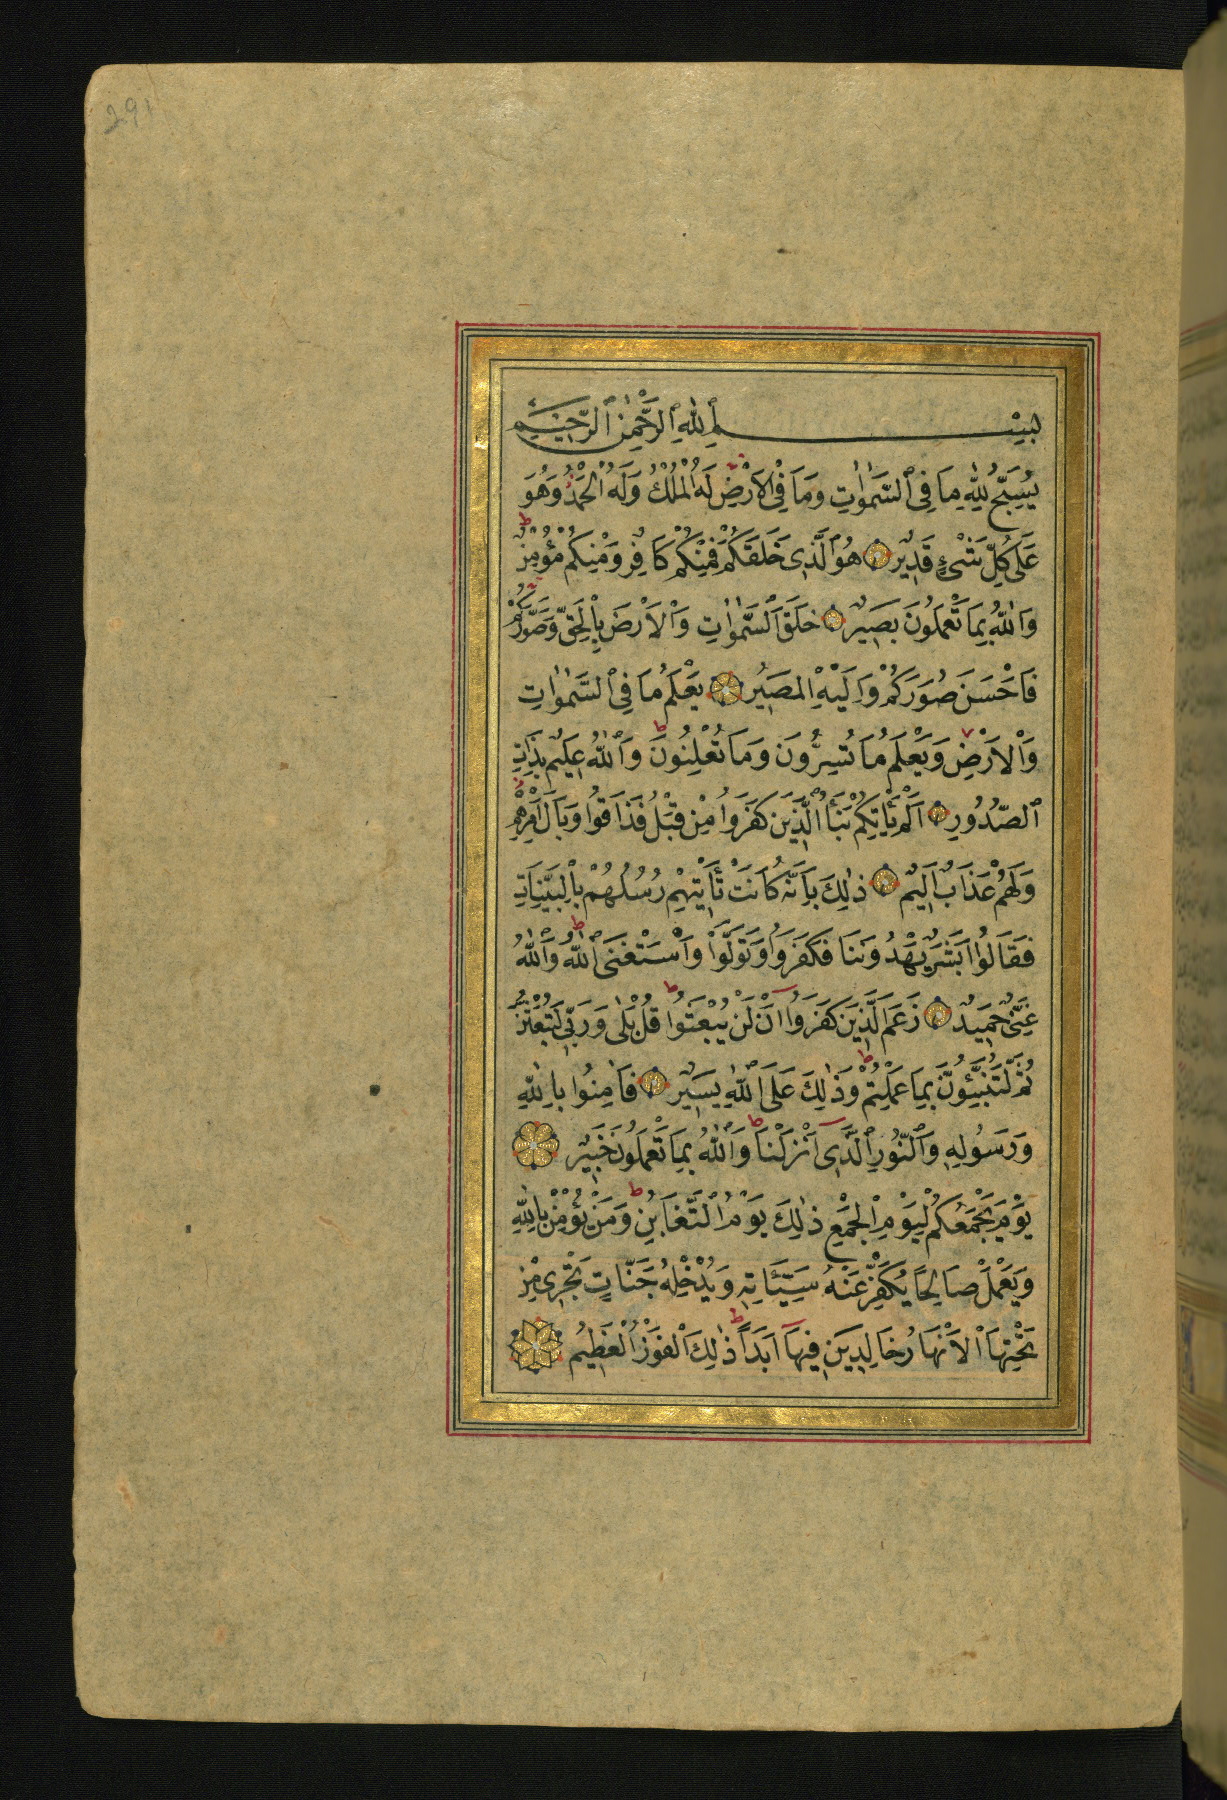 291
بِسْمِ اللّٰهِ الرَّحْمٰنِ الرَّحِيْمِ
يُسَبِّحُ لِلّٰهِ مَا فِي السَّمٰوٰاتِ وَمَا فِي الْاَرْضِ لَهُ الْمُلْكُ وَلَهُ الْحَمْدُ وَهُوَ
عَلٰى كُلِّ شَيْءٍ قَدِيْرٌ هُوَ الَّذِى خَلَقَكُمْ فَمِنْكُمْ كَافِرٌ وَمِنْكُمْ مُؤْمِنٌ
وَاللّٰهُ بِمَا تَعْمَلُونَ بَصِيْرٌ خَلَقَ السَّمٰوٰاتِ وَالْاَرْضَ بِالْحَقِّ وَصَوَّرَكُمْ
فَاَحْسَنَ صُوَرَكُمْ وَاِلَيْهِ الْمَصِيْرُ يَعْلَمُ مَا فِي السَّمٰوٰاتِ
وَالْاَرْضِ وَيَعْلَمُ مَا تُسِرُّونَ وَمَا تُعْلِنُونَ وَاللّٰهُ عَلِيْمٌ بِذَاتِ
الصُّدُورِ اَلَمْ يَاْتِكُمْ نَبَأُ الَّذِيْنَ كَفَرَوُا مِنْ قَبْلُ فَذَاقُوا وَبَالَ اَمْرِهِمْ
وَلَهُمْ عَذَابٌ اَلِيْمٌ ذٰلِكَ بِاَنَّهُ كَانَتْ تَأْتِيْهِمْ رُسُلُهُمْ بِالْبَيِّنَاتِ
فَقَالُوْا اَبَشَرٌ يَهْدُونَنَا فَكَفَرَوُا وَتَوَلَّوْا وَاسْتَغْنَى اللّٰهُ وَاللّٰهُ
غَنِىٌّ حَمِيْدٌ زَعَمَ الَّذِيْنَ كَفَرَوُا اَنْ لَنْ يُبْعَثُوا قُلْ بَلٰى وَرَبِّى لَتُبْعَثُنَّ
ثُمَّ لَتُنَبَّئُونَّ بِمَا عَمِلْتُمْ وَذٰلِكَ عَلَى اللّٰهِ يَسِيْرٌ فَاٰمِنُوا بِاللّٰهِ
وَرَسُولِهِ وَالنُّورِ الَّذِى اَنْزَلْنَا وَاللّٰهُ بِمَا تَعْمَلُونَ خَبِيْرٌ
يَوْمَ يَجْمَعُكُمْ لِيَوْمِ الْجَمْعِ ذٰلِكَ يَوْمُ التَّغَابُنِ وَمَنْ يُؤْمِنْ بِاللّٰهِ
وَيَعْمَلْ صَالِحًا يُكَفِّرْ عَنْهُ سَيِّئَاتِهِ وَيُدْخِلْهُ جَنَّاتٍ تَجْرِى مِنْ
تَحْتِهَا الْاَنْهَارُ خَالِدِيْنَ فِيهَا اَبَدًا ذٰلِكَ الْفَوْزُ الْعَظِيْمُ